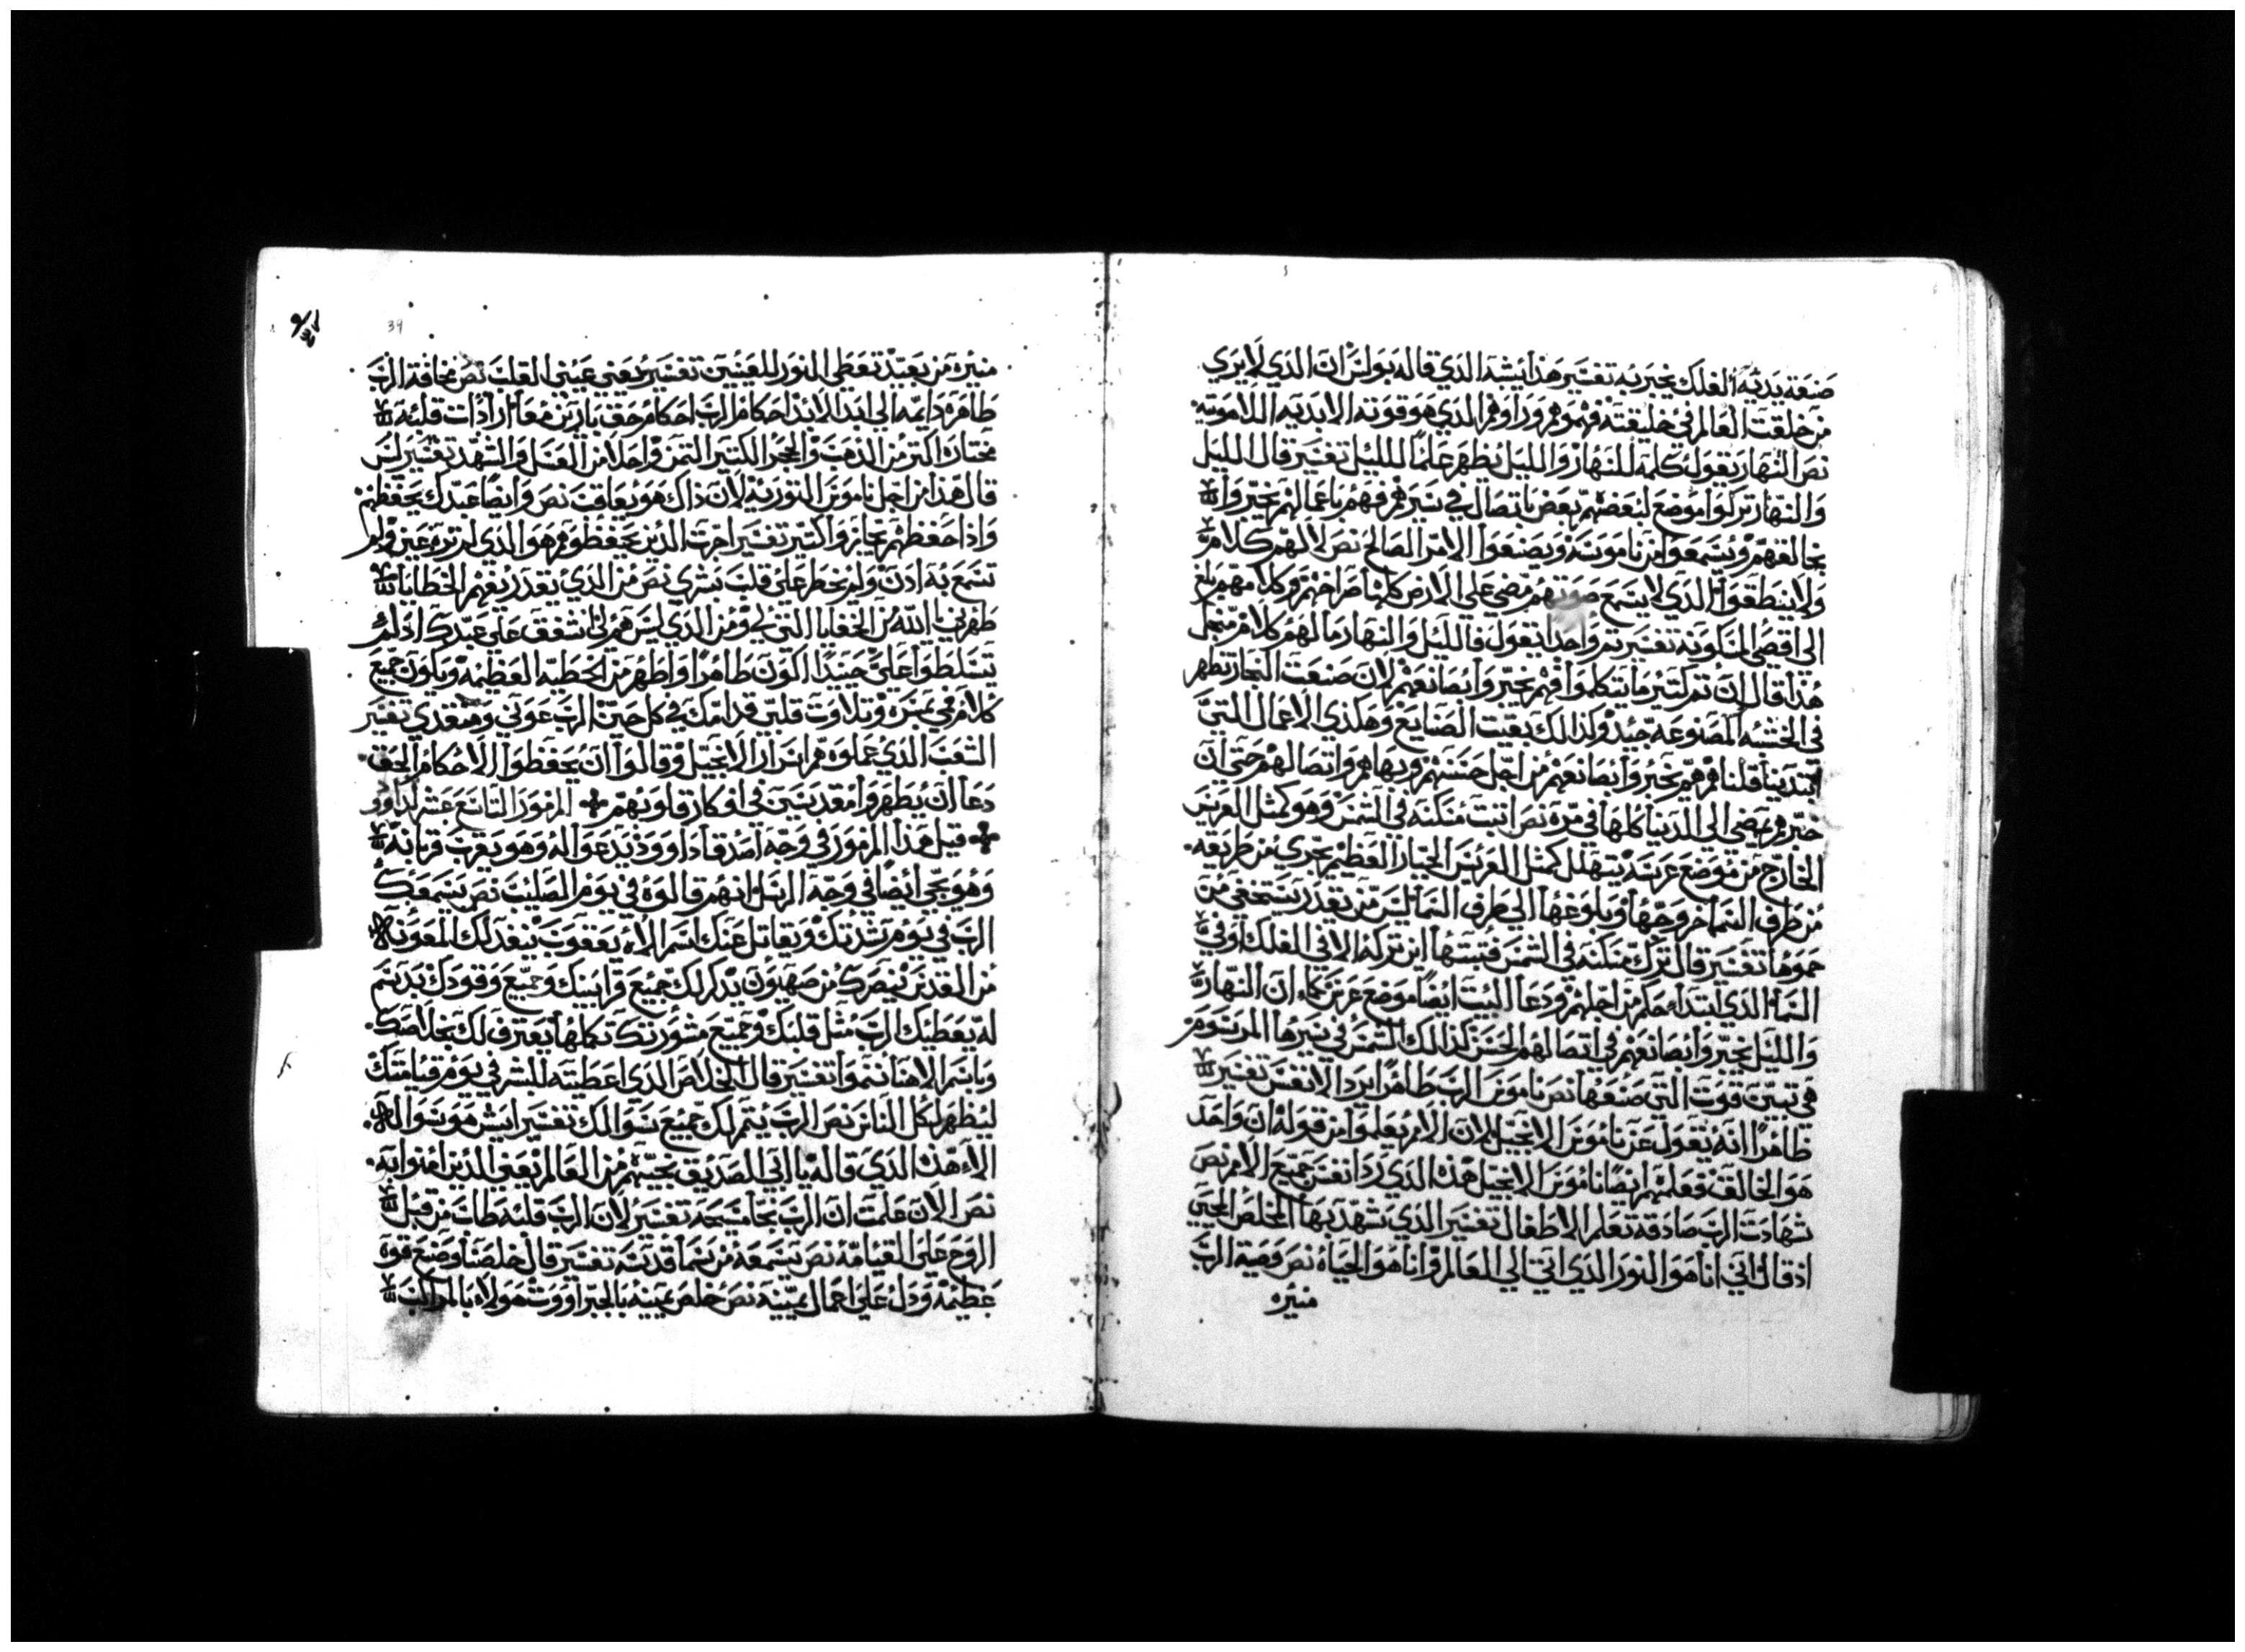 صنعة يديه الفلك يخبر به تفسير هذا يشبه الذي قاله بولس ان الذي لا يري
من خلقت العالم في خليقته فهموهم وراوهم الذي هو قوته الابديه اللاهوتيه
نص النهار يقول كلمة للنهار والليل يظهر علما لليل تفسير قال الليل
والنهار تركوا موضع لبعضهم بعض باتصال في سيرهم فهم باعمالهم يخبروا
بخالقهم ويسمعوا من ناموسه ويصنعوا الامر الصالح نص لا لهم كلام
ولا ينطقوا الذي لا يسمع صوتهم مضي علي الارض كلها صراخهم وكلامهم بلغ
الي اقصي المسكونه تفسير ثم واحدا يقول فالليل والنهار ما لهم كلام من اجل
هذا قال ان ثم كثير ما يتكلموا فهم يخبروا بصانعهم لان صنعت النجار تظهر
في الخشبه المصنوعه جيد وكذالك بقيت الصنايع وهكذي الاعمال التي
ابتدينا قلنا هم يخبروا بصانعهم من اجل حسنهم وبهاهم واتصالهم حتي ان
خبرهم يمضي الي الدنيا كلها في مره نص اثبت مسكنه في الشمس وهو كمثل العريس
الخارج من موضع عرسه يتهلل كمثل العريس الجبار العظيم يجري من طريقه
من طرف السما خروجها وبلوغها الي طرف السما ليس من يقدر يستخفي من
حموها تفسير قال ترك مسكنه في الشمس فثبتها اين تركه الا في الفلك او في
السما الذي ابتدا احكم من اجلهم ودعا البيت ايضا موضع عرس كما ان النهار
والليل يخبروا بصانعهم في اتصالهم الحسن كذالك الشمس في سيرها المرسوم
هي تبين قوت التي صنعها نص ناموس الرب طاهرا يرد الانفس تفسير
طاهرا انه يقول عن ناموس الانجيل لان الامم يعلموا من قوله ان واحد
هو الخالق فعلمهم ايضا ناموس الانجيل هذه الذي رد انفس جميع الامم نص
شهادت الرب صادقه تعلم الاطفال تفسير الذي يشهد بها المخلص الحيي
اذ قال اني انا هو النور الذي اتي الي العالم وانا هو الحياه نص وصية الرب
منيره
39
منيره من بعيد تعطي النور للعينين تفسير يعني عيني القلب نص مخافة الرب
طاهره دايمه الي ابد الابد احكام الرب احكام حق بارين معا ارادات قلبه
مختاره اكثر من الذهب والحجر الكثير الثمن واحلا من العسل والشهد تفسير ليس
قال هذا من اجل ناموس التوريه لان ذاك هو يعاقب نص وايضا عبدك يحفظهم
واذا حفظهم يجازوا كثير تفسير اجرت الذين يحفظوهم هو الذي لم تره عين ولم
تسمع به اذن ولم يخطر علي قلب بشري نص من الذي يقدر يفهم الخطايا
طهرني يا الله من الخفايا التي لي ومن الذي ليس هم لي اشفق علي عبدك اذ لم
يتسلطوا علي حينيذ اكون طاهرا واطهر من الخطيه العظيمه ويكون جميع
كلام فمي بمسره وتلاوت قلبي قدامك في كل حين الرب عوني ومنقذي تفسير
الشعب الذي عملوه هم اسرار الانجيل وقالوا ان يحفظوا الاحكام الحق
دعا ان يطهروا مقدسين في افكار قلوبهم المزمور التاسع عشر لداوود
قيل هذا المزمور في وجه اصدقا داوود يدعوا له وهو يقرب قربانه
وهو يجي ايضا في وجه الرسل انهم قالوه في يوم الصليب نص يسمعك
الرب في يوم شدتك ويقاتل عنك اسم الاه يعقوب ينفد لك المعونه
من القدس نيصرك من صهيون يذكر لك جميع قرابينك وجميع وقودك بدسم
له يعطيك الرب مثل قلبك وجميع مشورتك تكملها يعترف لك بخلاصك
وباسم الاهنا ننموا تفسير قال الخلاص الذي اعطيته للبشر في يوم قيامتك
ليظهر لكل الناس نص الرب يتم لك جميع سوالك تفسير ايش هو سوال
الاه هذه الذي قاله يا ابي الصديق نجيهم من العالم يعني الذين امنوا به
نص الان علمت ان الرب نجا مسيحه تفسير لان الرب قلبه طاب من قبل
الروح علي القيامه نص يسمعه من سما قدسه تفسير قال خلصنا وصنع قوة
عظيمه ودل علي اعمال يمينه نص خلص يمينه بالجبراووت هولاء بالمراكب